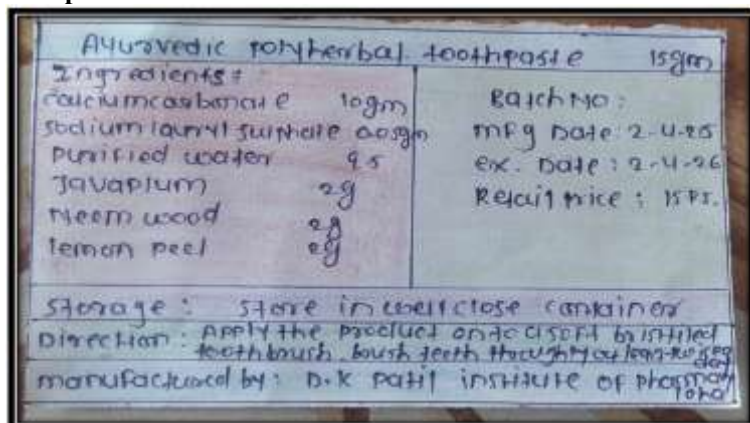 Ayurvedic polyherbal toothpaste 15gm
Ingredients:
calcium carbonate 10gm
sodium lauryl sulphate 0.05gm
purified water q.s
Javaplum 2g
Neem wood 2g
lemon peel 2g
Batch No:
mfg Date: 2-4-25
ex. Date: 2-4-26
Retail price: 15 Rs.
Storage: Store in well close container
Direction: Apply the product onto a soft bristled
toothbrush. brush teeth
manufactured by: D.K Patil institute of pharmacy
loha